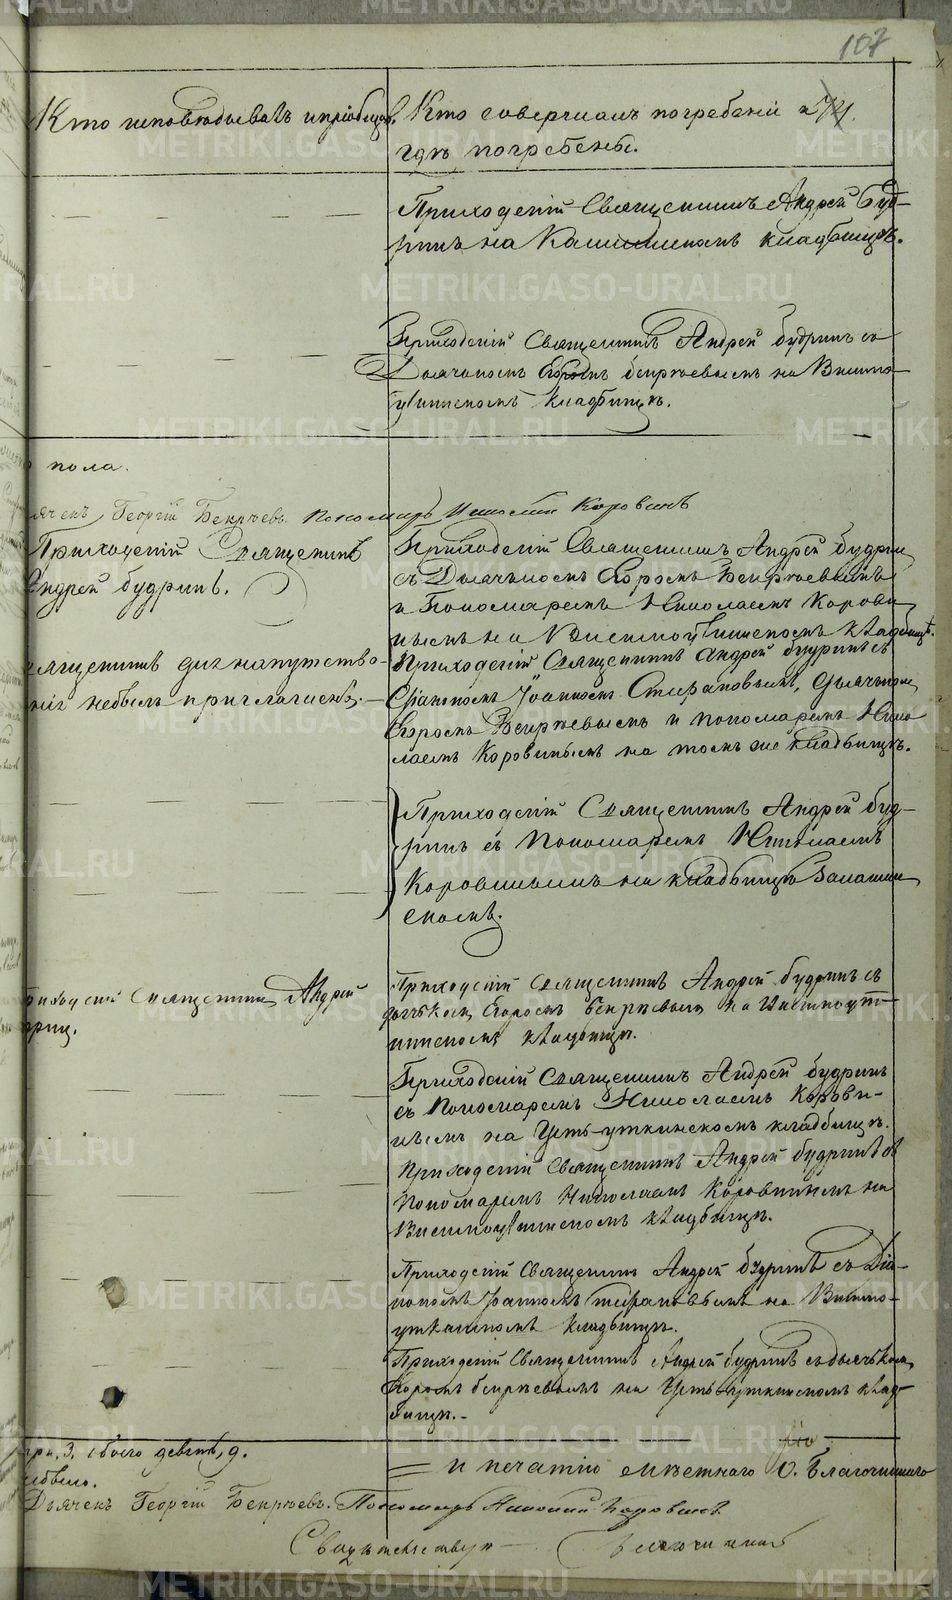 107
Кто исповѣдывалъ и пріобщалъ.
Кто совершалъ погребеніе и
гдѣ погребены.
Приходскій Священникъ Андрей Буд-
ринъ на кладбищѣ.
Приходскій Священникъ Андрей Будринъ съ
Дьячкомъ Егоромъ Бекрѣевымъ на Висимо-
уткинскомъ кладбищѣ.
пола.
Георгій Бекрѣевъ. Пономарь Николай Коровинъ
Приходскій Священникъ
Андрей Будринъ.
Приходскій Священникъ Андрей Будрин
съ Дьячкомъ Егоромъ Бекрѣевымъ
и Пономаремъ Николаемъ Корови
нымъ на Висимоуткинскомъ кладбищѣ.
Священникъ для напутство-
ній небылъ приглашенъ. —
Приходскій Священникъ Андрей Будринъ съ
Іоанномъ Стефановымъ, Дьячкомъ
Егоромъ Бекрѣевымъ и пономаремъ Нико
лаемъ Коровинымъ на томъ же кладбищѣ.
Приходскій Священникъ Андрей Буд-
ринъ съ Пономаремъ Николаемъ
Коровинымъ на кладбищѣ
скомъ.
Приходскій Священникъ Андрей
Приходскій Священникъ Андрей Будринъ съ
дьячкомъ Егоромъ Бекрѣевымъ на Висимоут-
кинскомъ кладбищѣ.
Приходскій Священникъ Андрей Будринъ
съ Пономаремъ Николаемъ Корови-
нымъ на Усть-уткинскомъ кладбищѣ.
Приходскій Священникъ Андрей Будринъ съ
Пономаремъ Николаемъ Коровинымъ на
Висимоуткинскомъ кладбищѣ.
Приходскій Священникъ Андрей Будринъ съ Діа-
кономъ Іоанномъ Стефановымъ на Висимо-
уткинскомъ кладбищѣ.
Приходскій Священникъ Андрей Будринъ съ дьячкомъ
Егоромъ Бекрѣевымъ на Усть-уткинскомъ клад-
бищѣ. -
3, обоего девять, 9.
небыло.
и печатію мѣстнаго О. Благочиннаго
Дьячекъ Георгій Бекрѣевъ. Пономарь Николай Коровинъ.
Свидѣтельствую Благочинный
METRIKI.GASO-URAL.RU